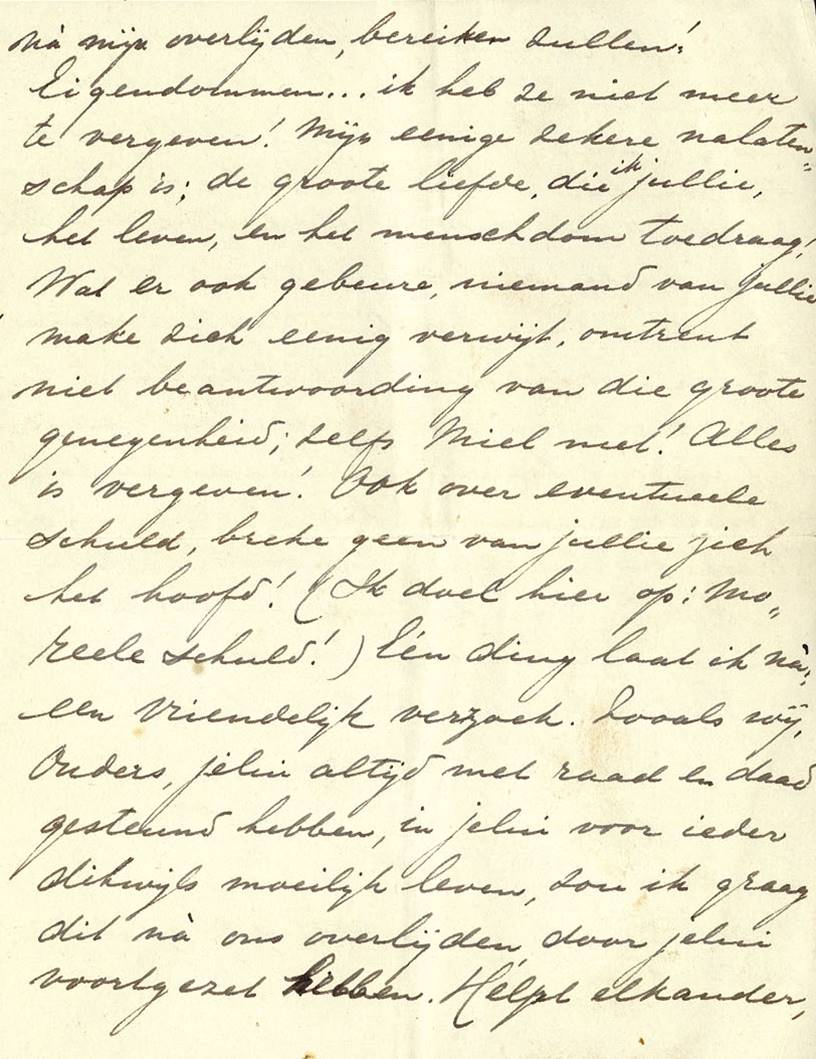 nà mijn overlijden, bereiken zullen!
Eigendommen... ik heb ze niet meer
te vergeven! Mijn eenige zekere nalaten„
schap is; de groote liefde, die ik jullie,
het leven, en het menschdom toedraag!
Wat er ook gebeure, niemand van jullie
make zich eenig verwijt, omtrent
niet beantwoording van die groote
genegenheid; zelfs Miel niet! Alles
is vergeven! Ook over eventueele
schuld, breke geen van jullie zich
het hoofd! (Ik doel hier op: Mo„
reele schuld!) Eén ding laat ik nà:
een vriendelijk verzoek. Zooals wij,
Ouders, jelui altijd met raad en daad
gesteund hebben, in jelui voor ieder
dikwijls moeilijk leven, zou ik graag
dit nà ons overlijden door jelui
voortgezet hebben. Hélpt elkander,